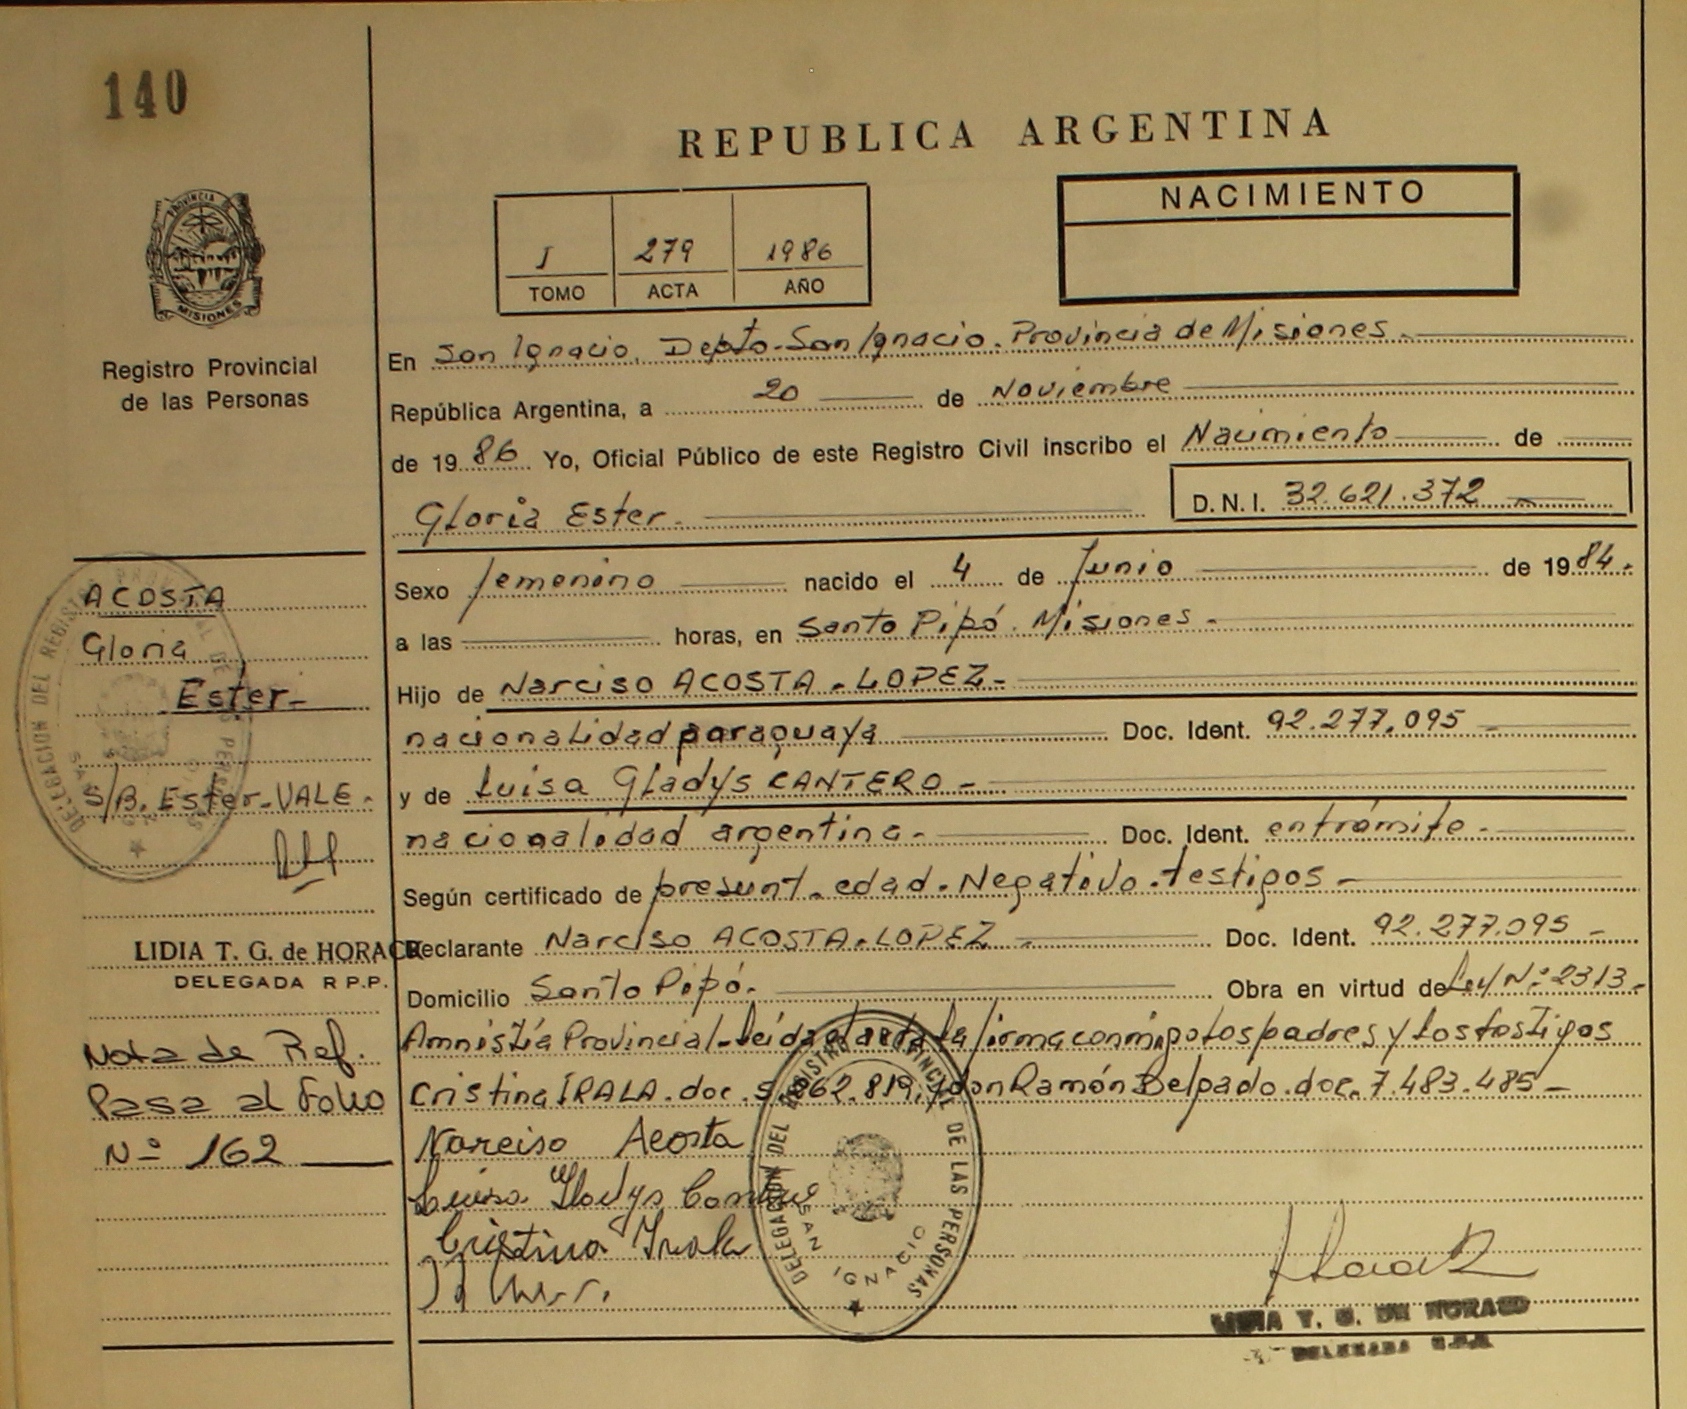 140
REPUBLICA ARGENTINA
NACIMIENTO
I 279 1986
TOMO ACTA AÑO
PROVINCIA DE
MISIONES
Registro Provincial
de las Personas
En San Ignacio. Depto. San Ignacio. Provincia de Misiones.
República Argentina, a 20 de Noviembre
de 1986 Yo, Oficial Público de este Registro Civil inscribo el Nacimiento de
Gloria Ester. D.N.I. 32.621.372
Sexo femenino nacido el 4 de Junio de 1984.
a las horas, en Santo Pipó. Misiones.
Hijo de Narciso ACOSTA-LOPEZ-
nacionalidad paraguaya Doc. Ident. 92.277.095
y de Luisa Gladys CANTERO-
nacionalidad argentina- Doc. Ident. en trámite.
Según certificado de presunt. edad. Negativo. testigos-
Declarante Narciso ACOSTA-LOPEZ Doc. Ident. 92.277.095
Domicilio Santo Pipó. Obra en virtud de Ley Nº 2313.
Amnistía Provincial-leída el acta la firma conmigo los padres y los testigos
Cristina IRALA. doc. 862.819. y don Ramón Delgado. doc. 7.483.485-
Narciso Acosta
Luisa Gladys
Cristina Irala
ACOSTA
Gloria
Ester-
S/B. Ester-VALE-
LIDIA T. G. de HORACK
DELEGADA R P.P.
Nota de Ref.
Pasa al Folio
Nº 162
DELEGACION DEL REGISTRO PROVINCIAL DE LAS PERSONAS
SAN IGNACIO
LIDIA T. G. DE HORACK
DELEGADA R.P.P.